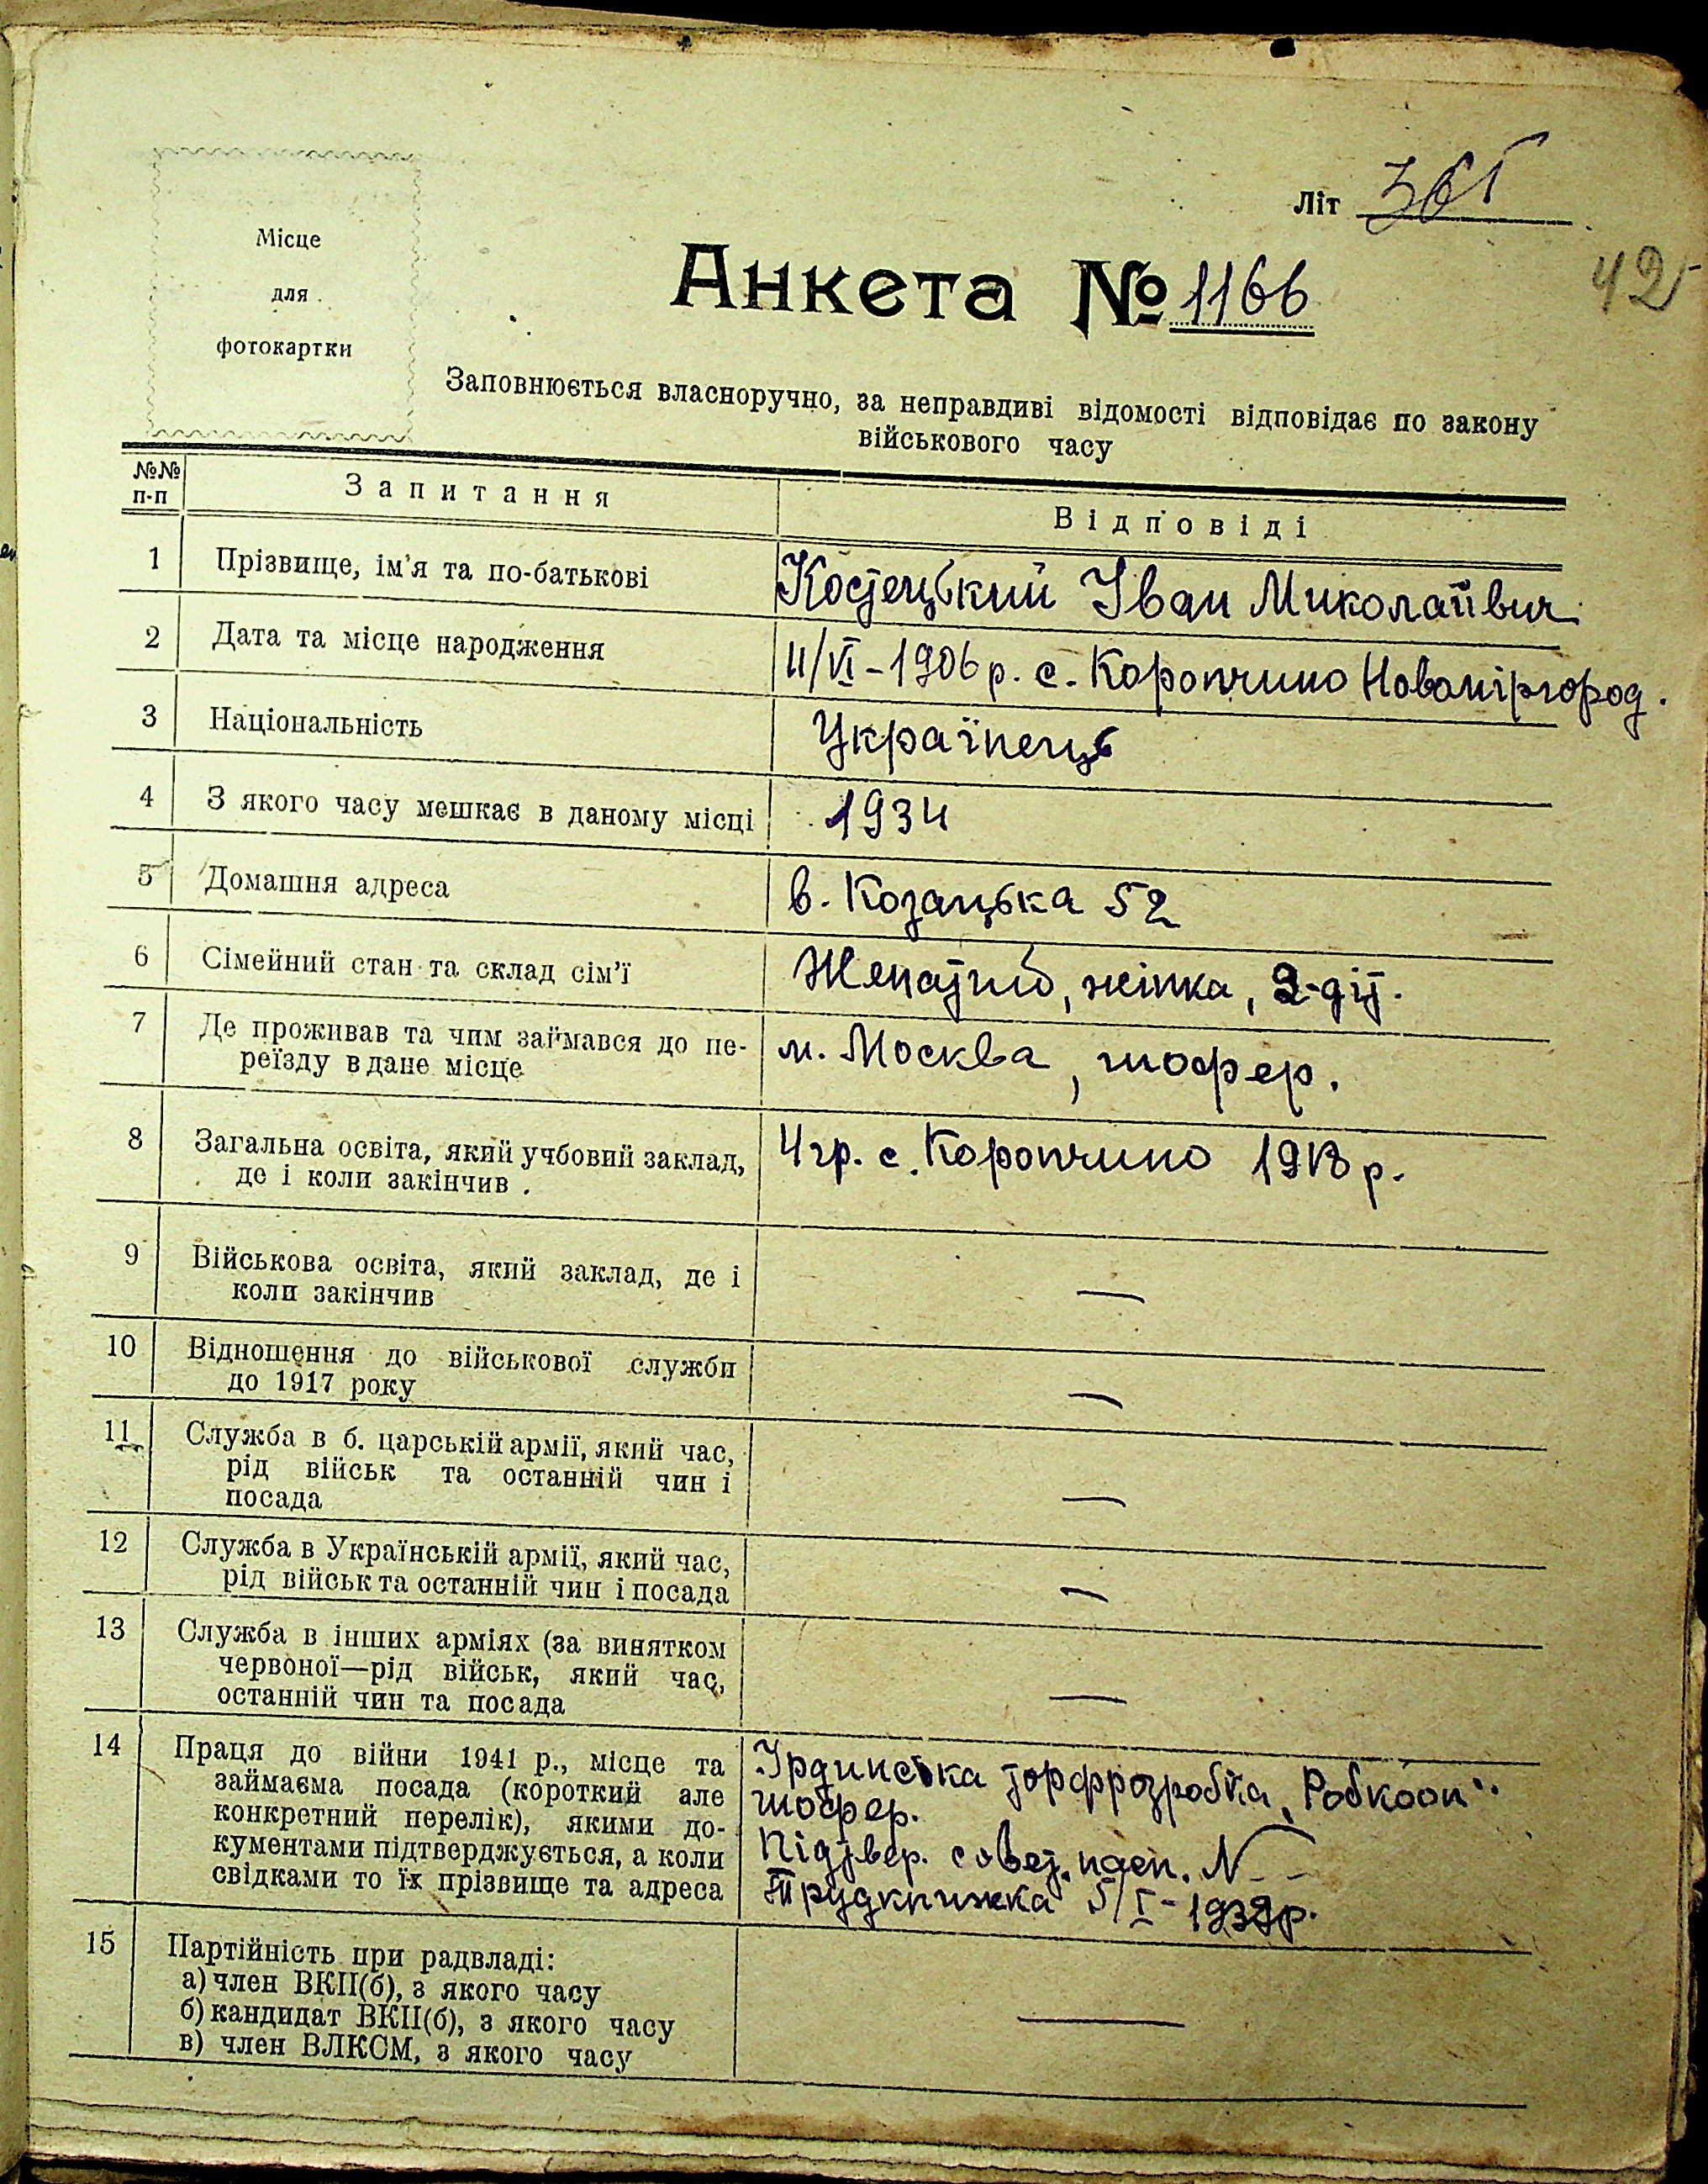 Місце
для
фотокартки
Літ
42
Анкета № 1166
Заповнюється власноручно, за неправдиві відомості відповідає по закону
військового часу
№№
п-п
Запитання
Відповіді
1 Прізвище, ім'я та по-батькові
Костецький Іван Миколаївич
2 Дата та місце народження
11/VI-1906 р. с. Коропчино Новоміргород.
3 Національність
Українець
4 З якого часу мешкає в даному місці
1934
5 Домашня адреса
в. Козацька 52
6 Сімейний стан та склад сім'ї
Женатий, жінка, 2-діт.
7 Де проживав та чим займався до пе-
реїзду в дане місце
м. Москва, шофер.
8 Загальна освіта, який учбовий заклад,
де і коли закінчив.
4 гр. с. Коропчино 1918 р.
9 Військова освіта, який заклад, де і
коли закінчив
—
10 Відношення до військової служби
до 1917 року
—
11 Служба в б. царській армії, який час,
рід військ та останній чин і
посада
—
12 Служба в Українській армії, який час,
рід військ та останній чин і посада
—
13 Служба в інших арміях (за винятком
червоної—рід військ, який час,
останній чин та посада
—
14 Праця до війни 1941 р., місце та
займаєма посада (короткий але
конкретний перелік), якими до-
кументами підтверджується, а коли
свідками то їх прізвище та адреса
Ірдинська торфрозробка „Робкооп"
шофер.
Підтвер. совет. пасп. N —
Трудкнижка 5/I-1939р.
15 Партійність при радвладі:
а) член ВКП(б), з якого часу
б) кандидат ВКП(б), з якого часу
в) член ВЛКСМ, з якого часу
—